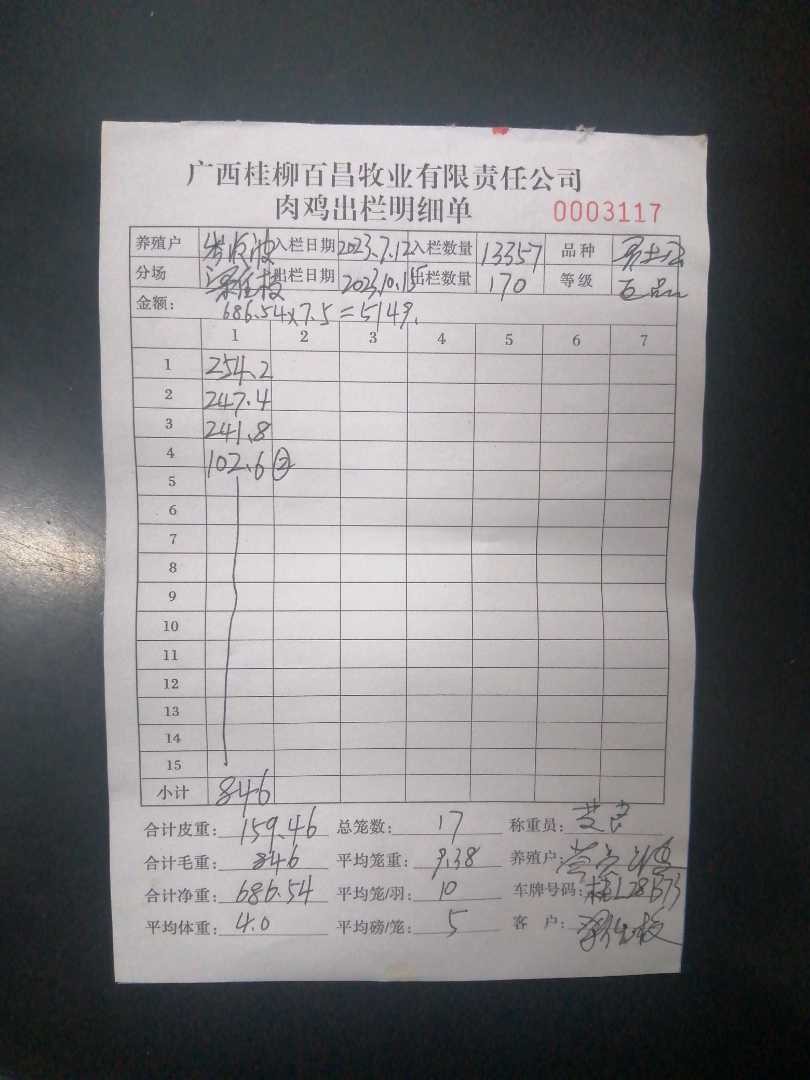 广西桂柳百昌牧业有限责任公司
肉鸡出栏明细单 0003117
养殖户 入栏日期 2023.7.12 入栏数量 13357 品种
分场 出栏日期 2023.10.15 出栏数量 170 等级
金额: 686.54×7.5=5149.
1 2 3 4 5 6 7
1 254.2
2 247.4
3 241.8
4 102.6 ②
5
6
7
8
9
10
11
12
13
14
15
小计 846
合计皮重: 159.46 总笼数: 17 称重员:
合计毛重: 846 平均笼重: 9.38 养殖户:
合计净重: 686.54 平均笼/羽: 10 车牌号码:
平均体重: 4.0 平均磅/笼: 5 客户: